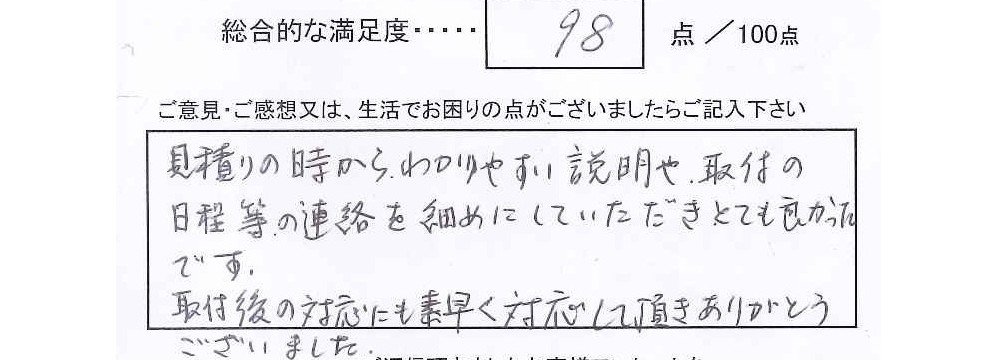 総合的な満足度・・・・・ 98 点 ／100点
ご意見・ご感想又は、生活でお困りの点がございましたらご記入下さい
見積りの時から、わかりやすい説明や、取付の
日程等の連絡を細めにしていただきとても良かった
です。
取付後の対応にも素早く対応して頂きありがとう
ございました。